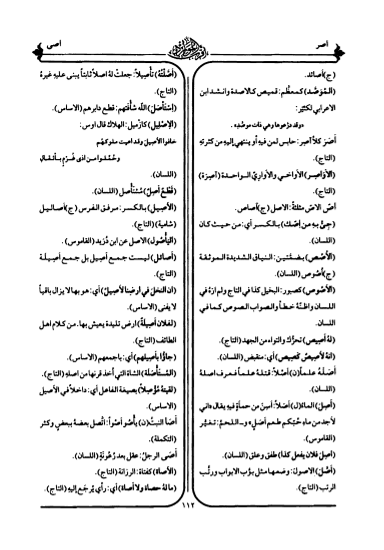 أصر
أصى
(ج) أصائد.
(المُؤَصَّد) كمعظّم: قميص كالاصدة وانشد ابن
الاعرابي لكثير:
«وقد درّعوها وهي ذات موصّد»
أصَرَ كلأ آصر: حابس لمن فيه أو ينتهي إليه من كثرته
(التاج).
(الأوَاصِير) الأواخي والأواريّ الواحدة (آصرة)
(التاج).
أصّ الاسّ مثلثة: الاصل (ج) آصاص.
(جِيء به من إصّك) بالكسر أي: من حيث كان
(اللسان).
(الأُصُص) بضمّتين: النياق الشديدة الموثقة
(ج) أصوص (اللسان).
(الأصُوص) كصبور: البخيل كذا في التاج ولم اره في
اللسان واظنّه خطأ والصواب الصوص كما في
اللسان.
(له أصيص) تحرّك والتواء من الجهد (التاج).
(انه لأصيصٌ كصيص) أي: منقبض (اللسان).
أصَلَهُ علماً(ن) أصْلاً: قتلهُ علماً فعرف اصلهُ
(اللسان).
(أصِلَ) الماء(ل) أصَلاً: أسِنَ من حمأةٍ فيه يقال «اني
لأجد من ماءِ حُبّكم طعم أصَلٍ» و_ اللحمُ: تغيّر
(القاموس).
(اصِلَ فلان يفعل كذا) طفق وعلق (اللسان).
(أصَّلَ) الاصول: وضعها مثل بوَّب الابواب ورتَّب
الرتب (التاج).
(أصّلتُهُ) تأصيلاً: جعلتُ لهُ اصلاً ثابتاً يبنى عليهِ غيرهُ
(التاج).
(إستأصَلَ) اللّه شأفتهم: قطع دابرهم (الاساس).
(الإصليل) كازميل: الهلاك قال اوس:
خافوا الأصيل وقد اعيت ملوكهم
(اللسان).
(قَطعٌ أصيلٌ) مُستأصل (اللسان).
(الأصيل) بالكسر: مرفق الفرس (ج) أصاليل
(شامية) (التاج).
(اليأصُول) الاصل عن ابن دُرَيد (القاموس).
(أصائل) ليست جمع أصيل بل جمع أصيلة
(التاج).
(ان النخل في ارضنا لأصيلٌ) أي: هو بها لا يزال باقياً
لا يفنى (الاساس).
(لفلان أصيلة) ارض تليدة يعيش بها. من كلام اهل
الطائف (التاج).
(جاؤا بأصيلهم) أي: باجمعهم (الاساس).
(المستأصَلَة) الشاة التي أخذ قرنها من اصلهِ (التاج).
(لقيتهُ مُؤصِلاً) بصيغة الفاعل أي: داخلاً في الأصيل
(الاساس).
أصَا النبتُ(ن) يأصُو أصْواً: اتّصل بعضهُ ببعض وكثر
(التكملة).
أصَى الرجلُ: عقل بعد رعُونةٍ (اللسان).
(الأصاة) كفتاة: الرزانة (التاج).
(ما لهُ حصاة ولا أصاة) أي: رأي يُرجَع إليهِ (التاج).
١١٢